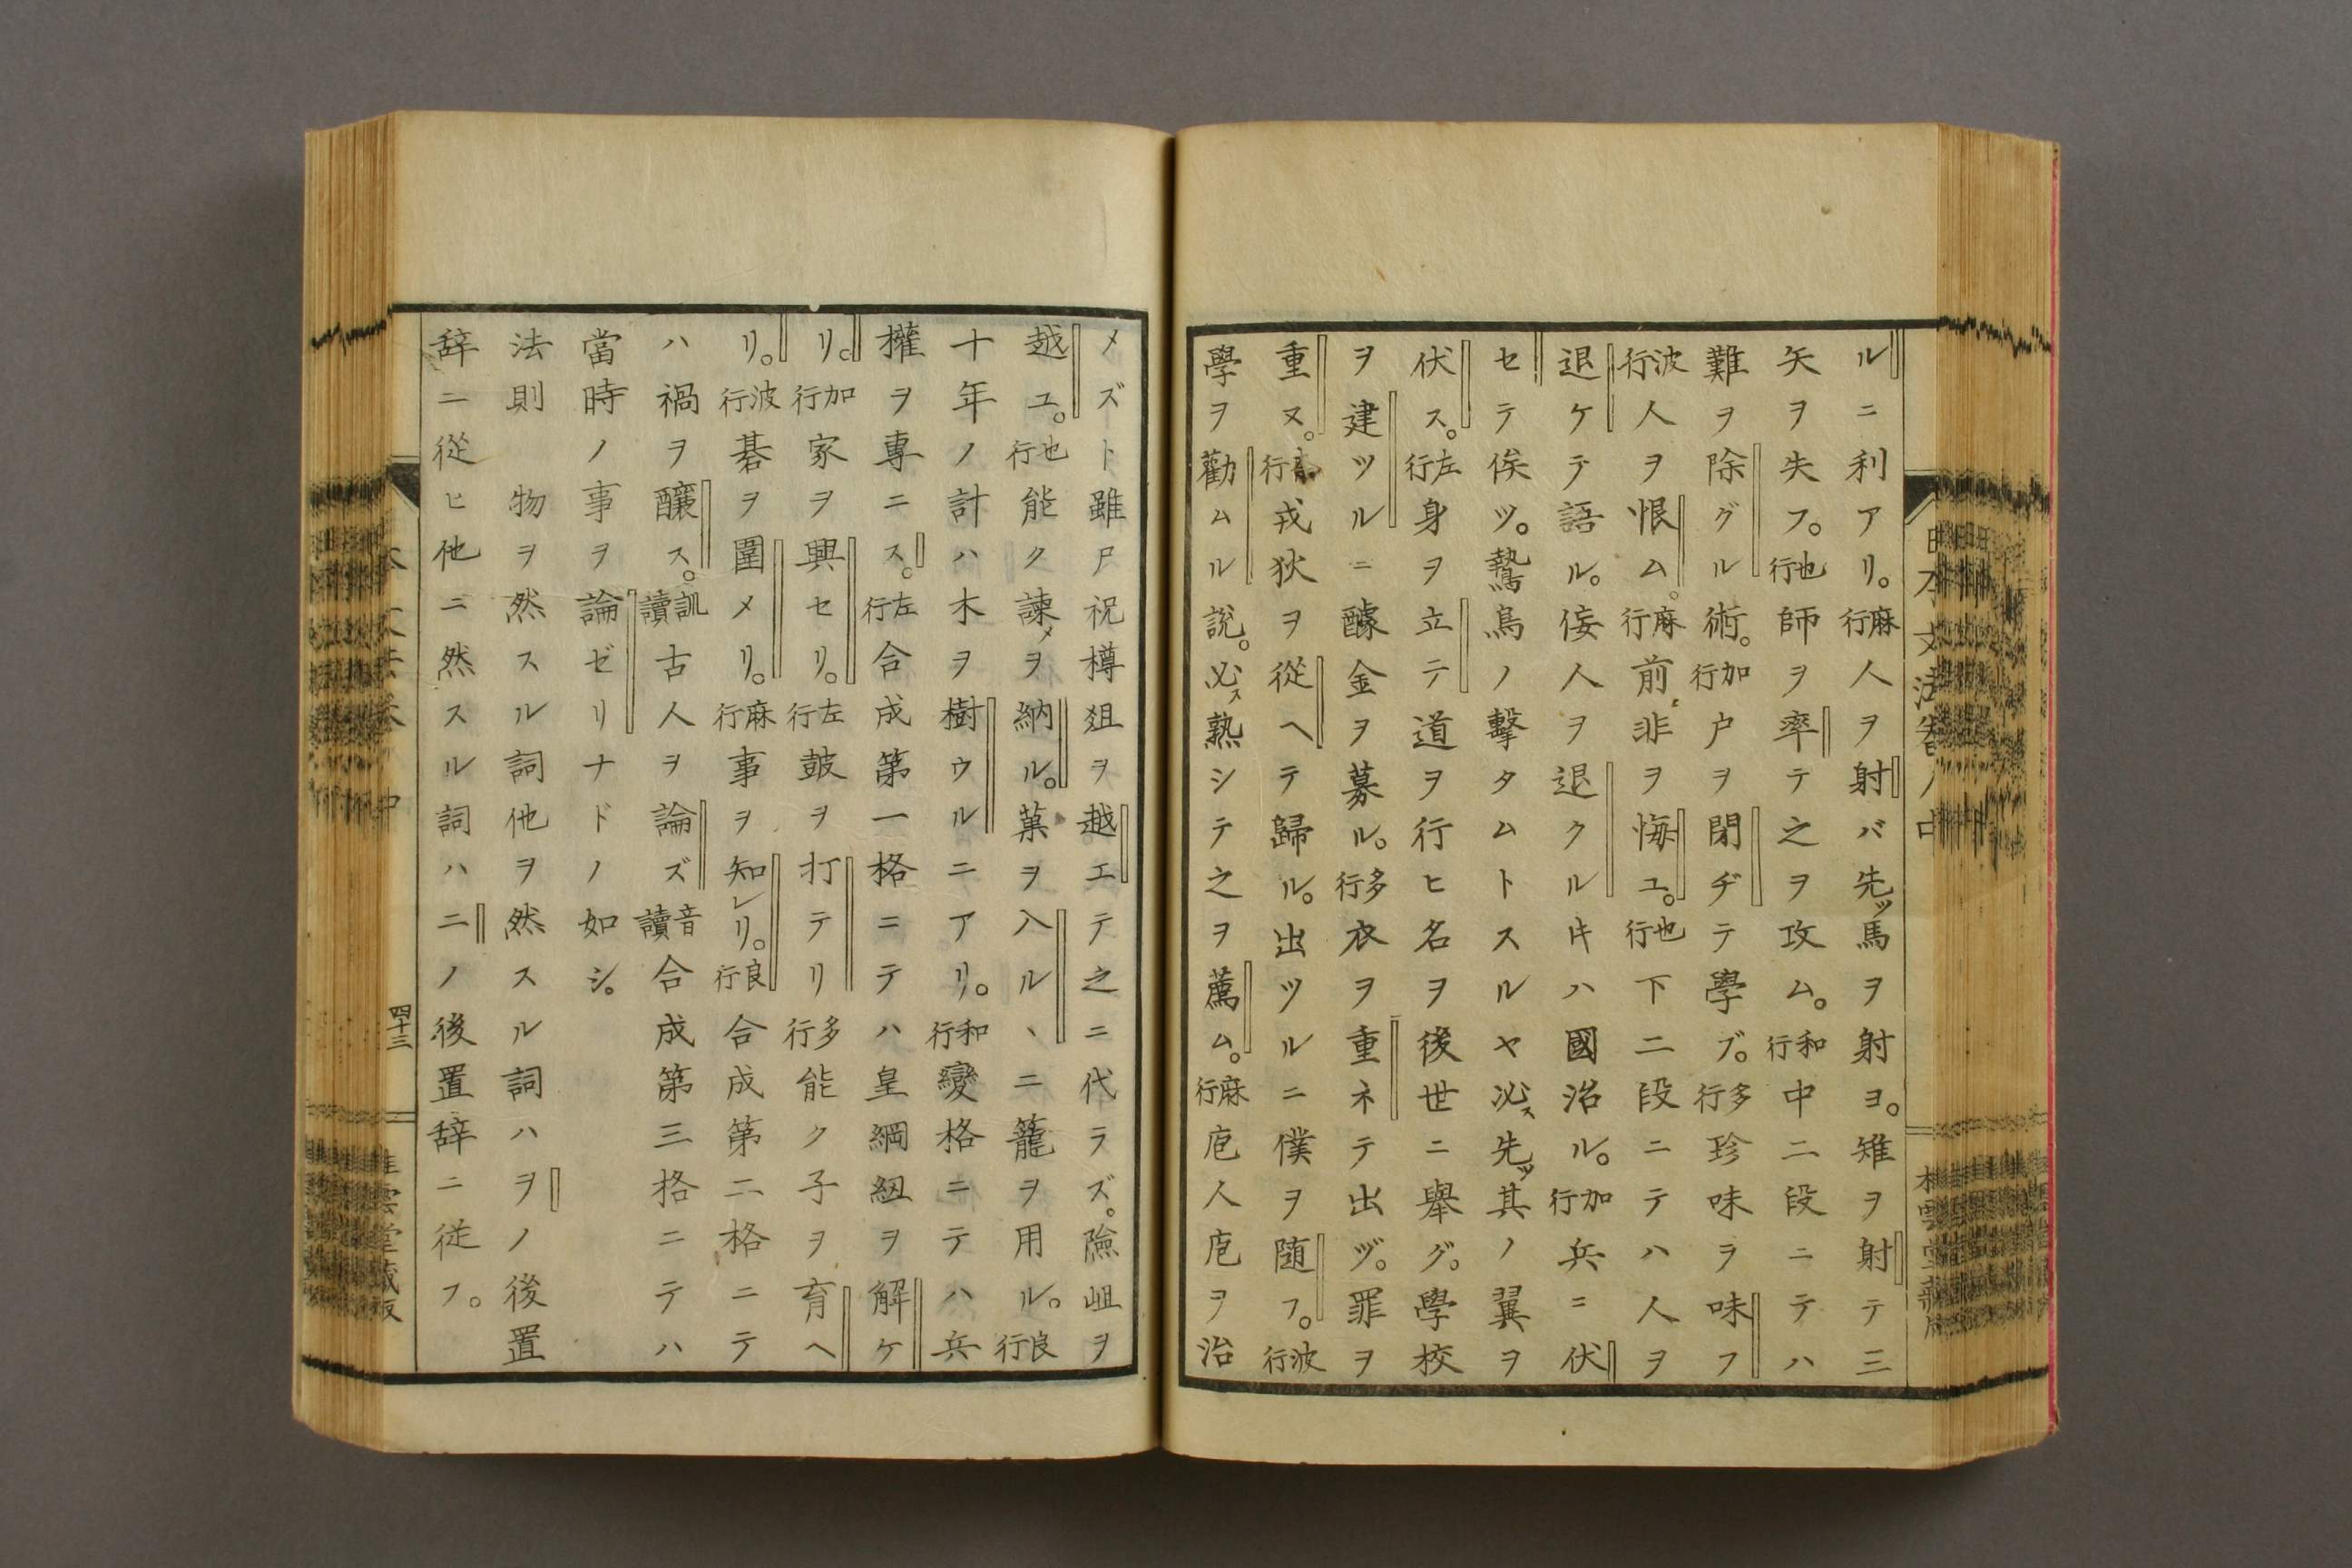 ルニ利アリ。麻行人ヲ射バ先ッ馬ヲ射ヨ。雉ヲ射テ三
矢ヲ失フ。也行師ヲ率テ之ヲ攻ム。和行中二段ニテハ
難ヲ除グル術。加行戸ヲ閉ヂテ學ブ。多行珍味ヲ味フ
波行人ヲ恨ム。麻行前非ヲ悔ユ。也行下二段ニテハ人ヲ
退ケテ語ル。侫人ヲ退クル𪜈ハ國治ル。加行兵ニ伏
セテ俟ツ。鷙鳥ノ擊タムトスルヤ必ス先ッ其ノ翼ヲ
伏ス。左行身ヲ立テ道ヲ行ヒ名ヲ後世ニ舉グ。學校
ヲ建ツルニ醵金ヲ募ル。多行衣ヲ重ネテ出ヅ。罪ヲ
重ヌ。行戎狄ヲ從ヘテ歸ル。出ツルニ僕ヲ随フ。波行
學ヲ勸ムル説。必ス熟シテ之ヲ薦ム。麻行庖人庖ヲ治
メズト雖𪜈祝樽俎ヲ越エテ之ニ代ラズ。險岨ヲ
越ユ。也行能ク諫メヲ納ル。菓ヲ入ルヽニ籠ヲ用ル。良行
十年ノ計ハ木ヲ樹ウルニアリ。和行變格ニテハ兵
權ヲ專ニス。左行合成第一格ニテハ皇綱紐ヲ解ケ
リ。加行家ヲ興セリ。左行鼓ヲ打テリ多行能ク子ヲ育ヘ
リ。波行碁ヲ圍メリ。麻行事ヲ知レリ。良行合成第二格ニテ
ハ禍ヲ釀ス。訓讀古人ヲ論ズ音讀合成第三格ニテハ
當時ノ事ヲ論ゼリナドノ如シ。
法則 物ヲ然スル詞他ヲ然スル詞ハヲノ後置
辞ニ從ヒ他ニ然スル詞ハニノ後置辞ニ従フ。
四十三